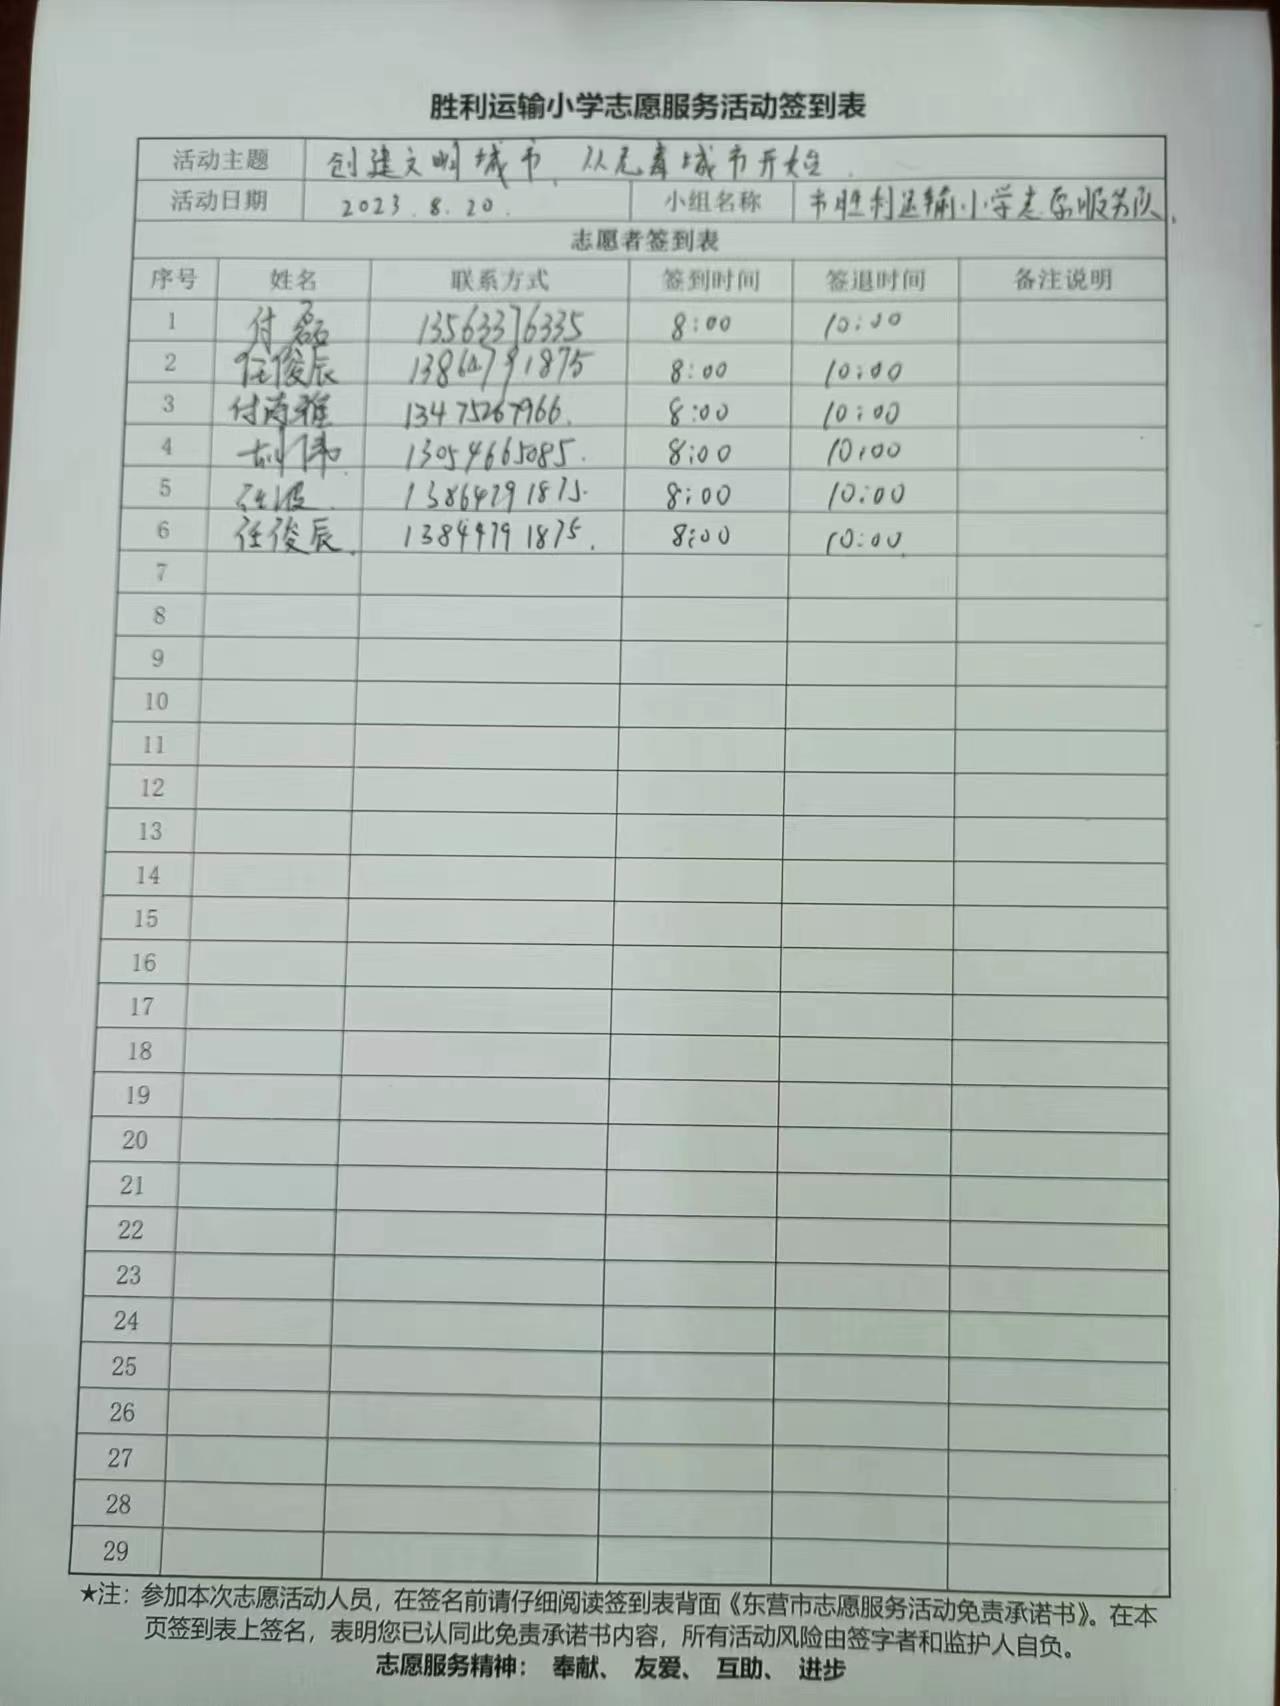 胜利运输小学志愿服务活动签到表
活动主题 创建文明城市、从无毒城市开始.
活动日期 2023.8.20. 小组名称 市胜利运输小学志愿服务队.
志愿者签到表
序号 姓名 联系方式 签到时间 签退时间 备注说明
1 付磊 13563376335 8:00 10:00
2 任俊辰 13864791875 8:00 10:00
3 付雅 13475267966. 8:00 10:00
4 刘伟 13054665085. 8:00 10:00
5 任波 13864791875. 8:00 10:00
6 任俊辰. 13844791875. 8:00 10:00
7
8
9
10
11
12
13
14
15
16
17
18
19
20
21
22
23
24
25
26
27
28
29
★注：参加本次志愿活动人员，在签名前请仔细阅读签到表背面《东营市志愿服务活动免责承诺书》。在本
页签到表上签名，表明您已认同此免责承诺书内容，所有活动风险由签字者和监护人自负。
志愿服务精神： 奉献、 友爱、 互助、 进步